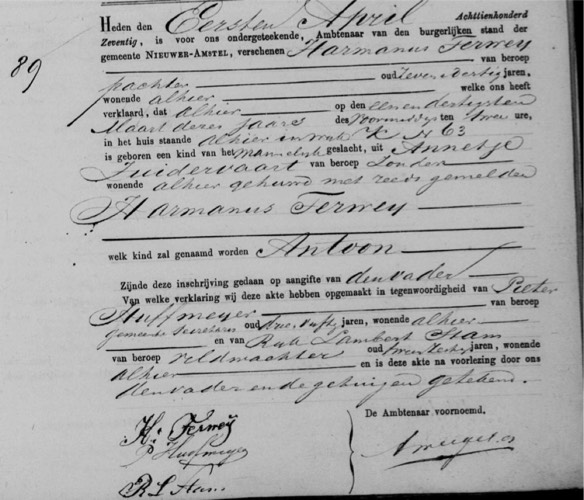 89
Heden den Eersten April Achttienhonderd
Zeventig, is voor ons ondergeteekende, Ambtenaar van den burgerlijken stand der
gemeente NIEUWER-AMSTEL, verschenen Harmanus Terwey
van beroep
pachter oud Zevenendertig jaren,
wonende alhier welke ons heeft
verklaard, dat alhier op den eenendertigsten
Maart dezes jaars des voormiddags ten twee ure,
in het huis staande alhier in wijk K No 63
is geboren een kind van het mannelijk geslacht, uit Annetje
Zuidervaart van beroep zonder
wonende alhier gehuwd met reeds gemelden
Harmanus Terwey
welk kind zal genaamd worden Antoon
Zijnde deze inschrijving gedaan op aangifte van den vader
Van welke verklaring wij deze akte hebben opgemaakt in tegenwoordigheid van Pieter
Huffmeijer van beroep
gemeente Secretaris oud jaren, wonende alhier
en van Lambert Stam
van beroep veldwachter oud jaren, wonende
alhier en is deze akte na voorlezing door ons
den vader en de getuigen geteekend.
De Ambtenaar voornoemd.
H. Terweij
P Huffmeijer
R L Stam